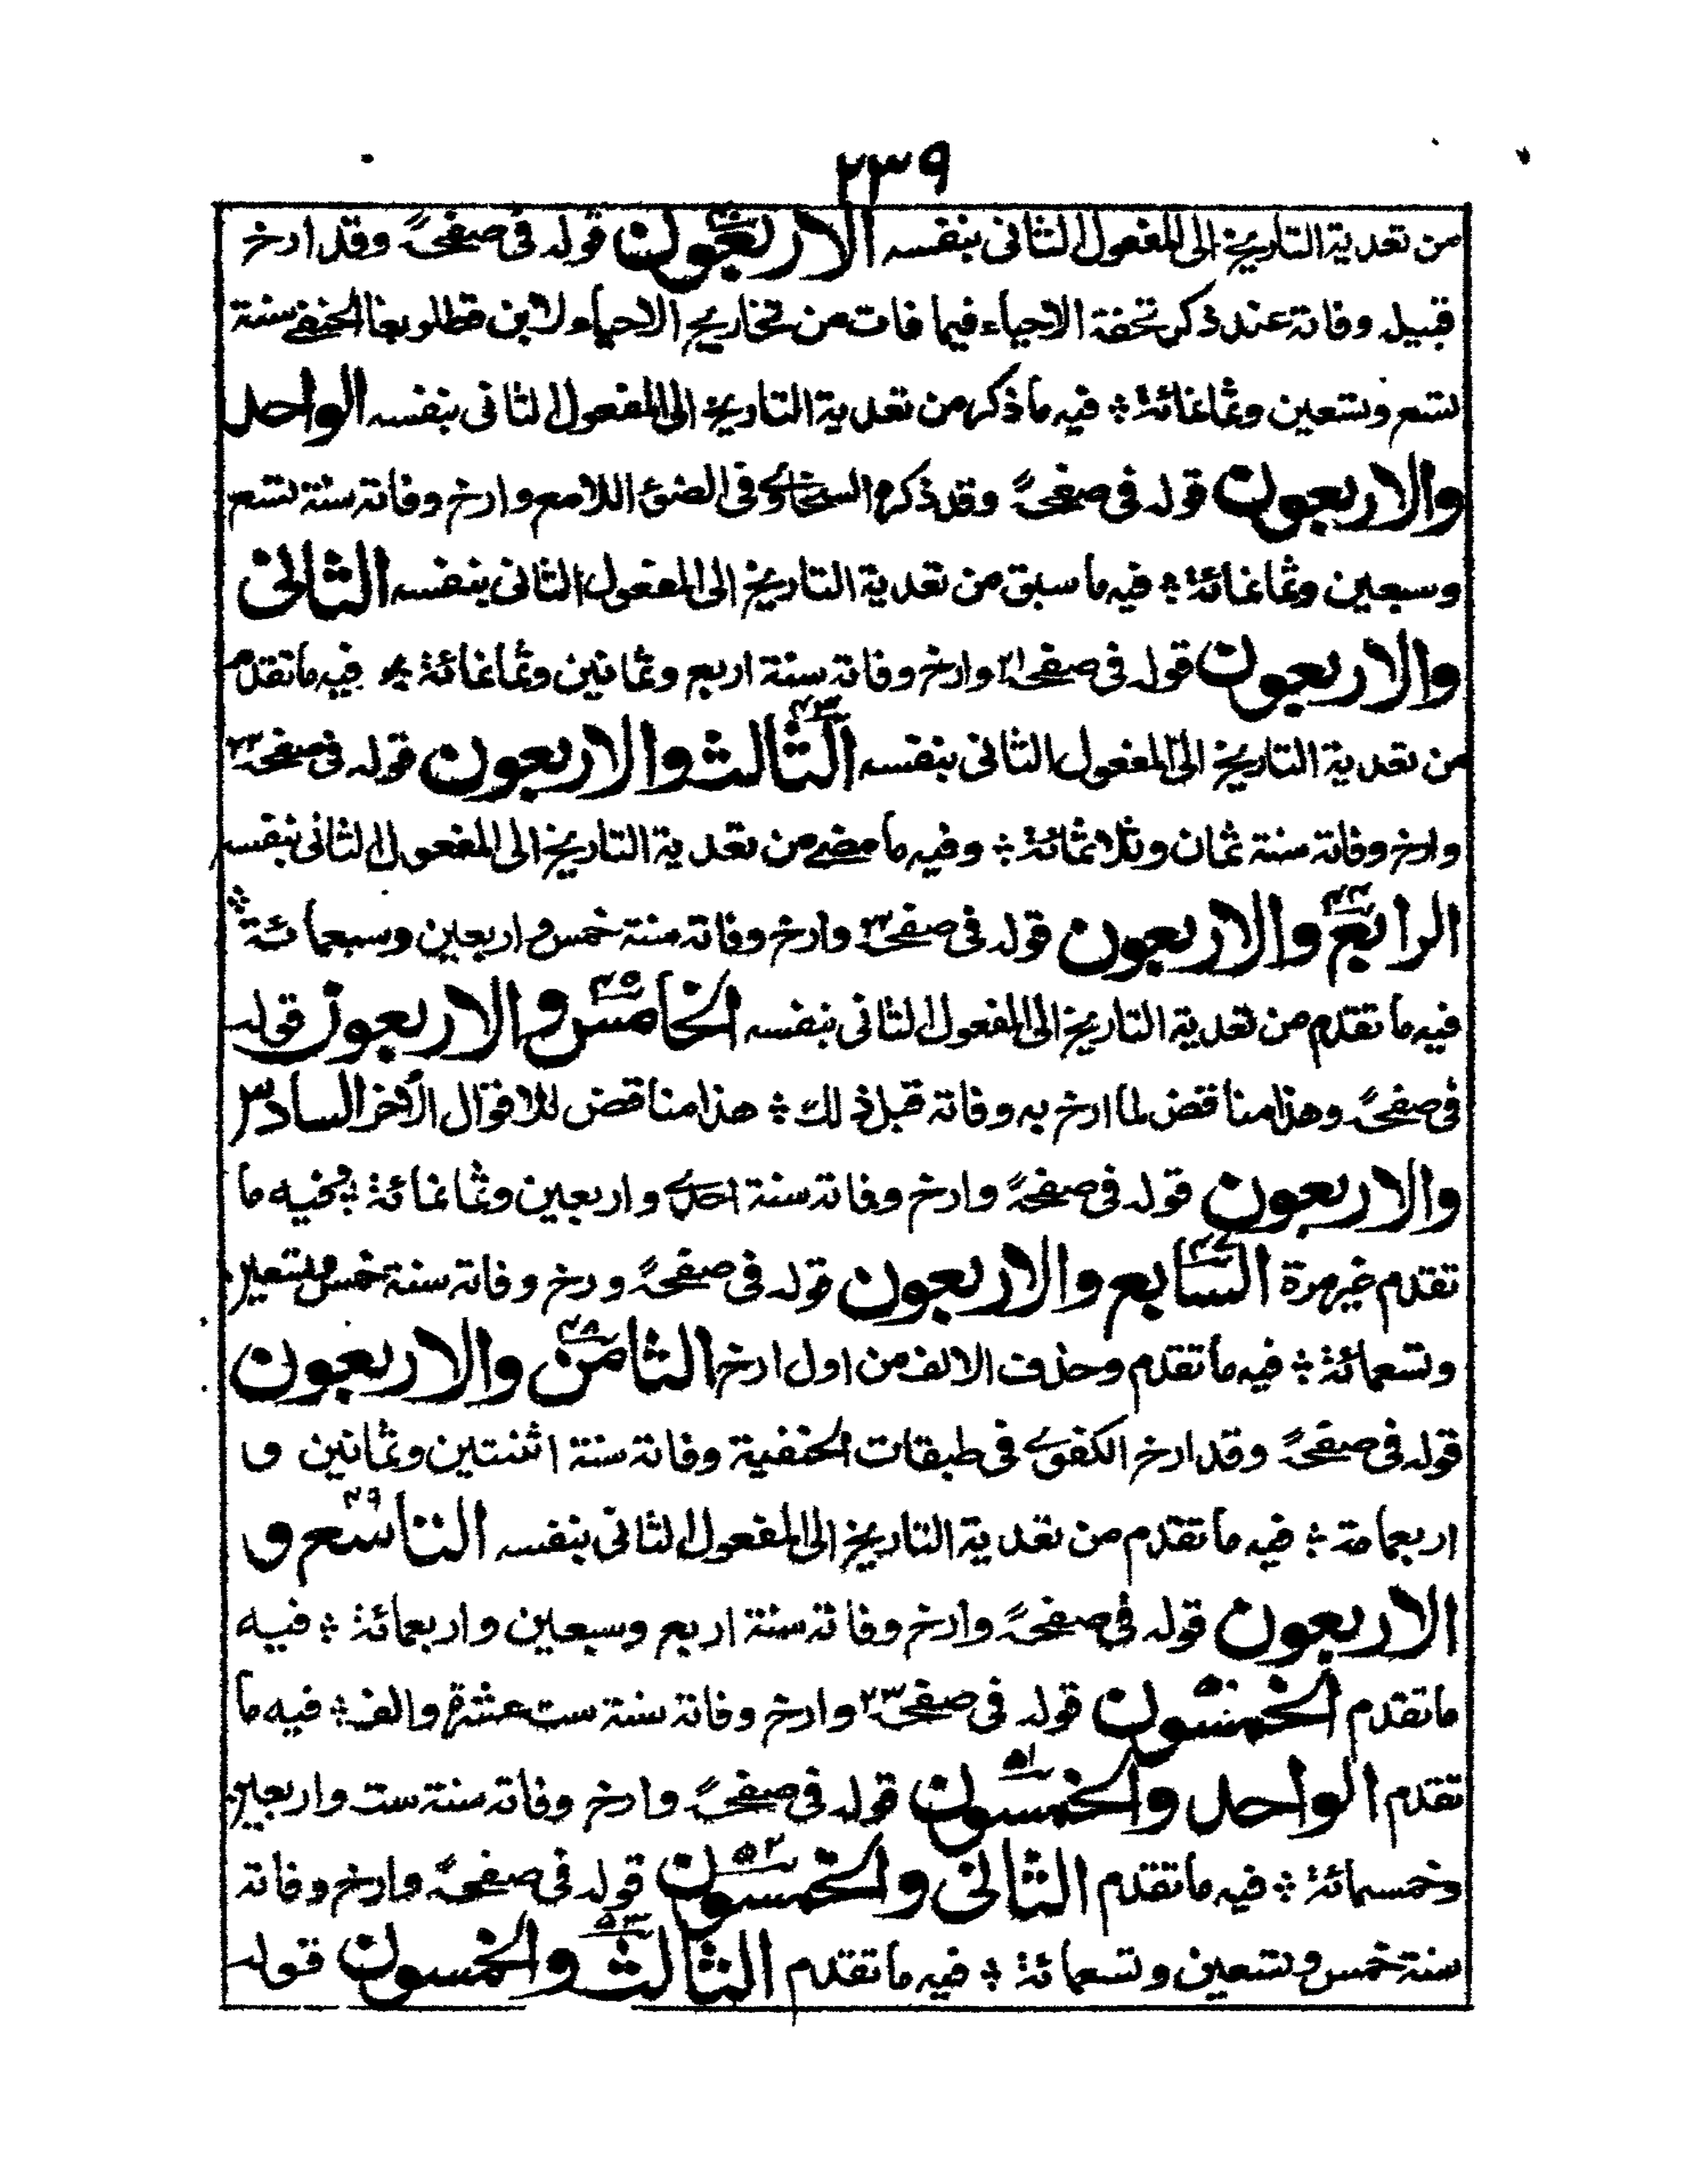 ٢٣٩
من تعدية التاريخ الى المفعول الثانى بنفسه الاربعون قوله فى صفحة وقد ارخ
قبيل وفاته عند ذكر تحفة الاحياء فيما فات من تخاريج الاحياء لابن قطلوبغا الحنفى سنة
تسع وتسعين وثمانمائة ؞ فيه ما ذكر من تعدية التاريخ الى المفعول الثانى بنفسه الواحد
والاربعون قوله فى صفحة وقد ذكره السخاوى فى الضوء اللامع وارخ وفاته سنة تسع
وسبعين وثمانمائة ؞ فيه ما سبق من تعدية التاريخ الى المفعول الثانى بنفسه الثانى
والاربعون قوله فى صفحة ٢١ وارخ وفاته سنة اربع وثمانين وثمانمائة ؞ فيه ما تقدم
من تعدية التاريخ الى المفعول الثانى بنفسه الثالث والاربعون ٤٣ قوله فى صفحة ٢٢
وارخ وفاته سنة ثمان وثلاثمائة ؞ وفيه ما مضى من تعدية التاريخ الى المفعول الثانى بنفسه
الرابع والاربعون ٤٤ قوله فى صفحة ٢٢ وارخ وفاته سنة خمس واربعين وسبعمائة ؞
فيه ما تقدم من تعدية التاريخ الى المفعول الثانى بنفسه الخامس والاربعون ٤٥ قوله
فى صفحة وهذا مناقض لما ارخ به وفاته قبل ذلك ؞ هذا مناقض للاقوال الاخر السادس
والاربعون قوله فى صفحة وارخ وفاته سنة احدى واربعين وثمانمائة ؞ فيه ما
تقدم غير مرة السابع والاربعون ٤٧ قوله فى صفحة ورخ وفاته سنة خمس وتسعين
وتسعمائة ؞ فيه ما تقدم وحذف الالف من اول ارخ الثامن والاربعون ٤٨
قوله فى صفحة وقد ارخ الكفوى فى طبقات الحنفية وفاته سنة اثنتين وثمانين و
اربعمامة ؞ فيه ما تقدم من تعدية التاريخ الى المفعول الثانى بنفسه التاسع و ٤٩
الاربعون قوله فى صفحة وارخ وفاته سنة اربع وسبعين واربعمائة ؞ فيه
ما تقدم الخمسون قوله فى صفحة ٢٣ وارخ وفاته سنة ست عشرة والف ؞ فيه ما
تقدم الواحد والخمسون ٥١ قوله فى صفحة وارخ وفاته سنة ست واربعين
وخمسمائة ؞ فيه ما تقدم الثانى والخمسون ٥٢ قوله فى صفحة وارخ وفاته
سنة خمس وتسعين وتسعمائة ؞ فيه ما تقدم الثالث والخمسون ٥٣ قوله